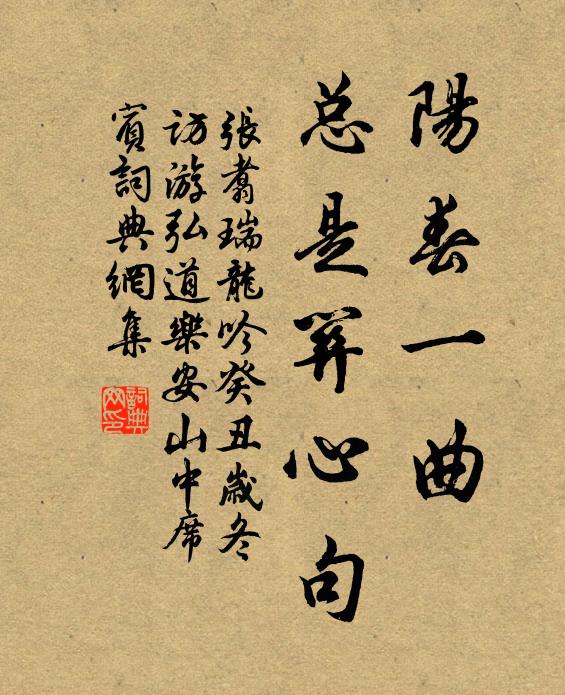 陽春一曲
总是關心句
張翥瑞龍吟癸丑歲冬
訪游弘道樂安山中席
賓詞典網集
詞典网印